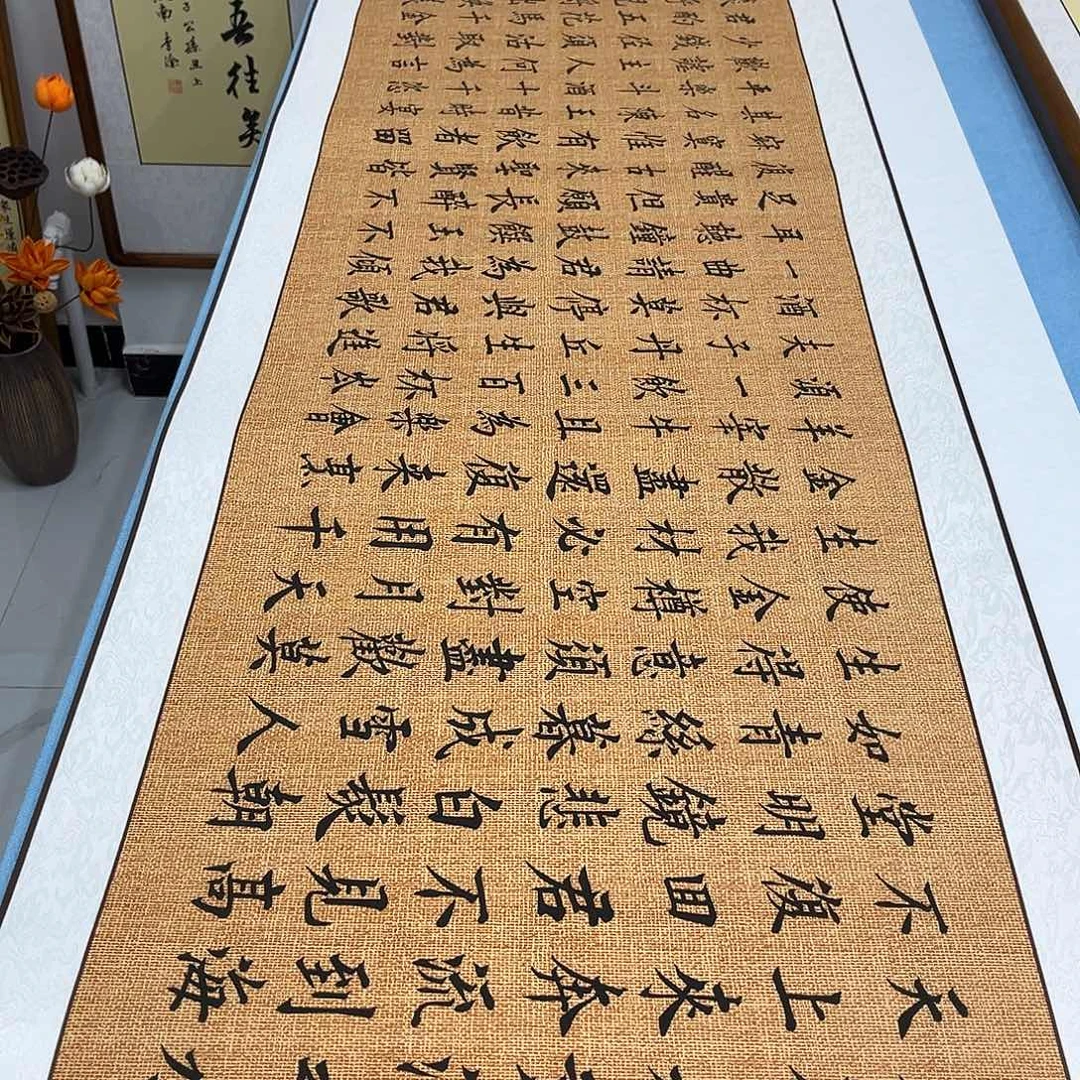 天上來奔流到海
不復回君不見高
堂明鏡悲白髮朝
如青絲暮成雪人
生得意須盡歡莫
使金樽空對月天
生我材必有用千
金散盡還復來烹
羊宰牛且為樂會
須一飲三百杯岑
夫子丹丘生將進
酒杯莫停與君歌
一曲請君為我傾
耳聽鐘鼓饌玉不
足貴但願長醉不
復醒古來聖賢皆
寂寞惟有飲者留
其名陳王昔時宴
平樂斗酒十千恣
歡謔主人何為言
少錢徑須沽取對
君酌五花馬千金
吾往矣
公孫丑上